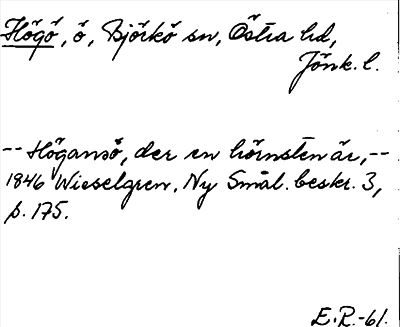 Högö, ö, Björkö sn, Östra hd,
Jönk. l.
-- Högansö, der en hörnsten är, --
1846 Wieselgren. Ny Smål. beskr. 3,
p. 175.
E.R.-61.